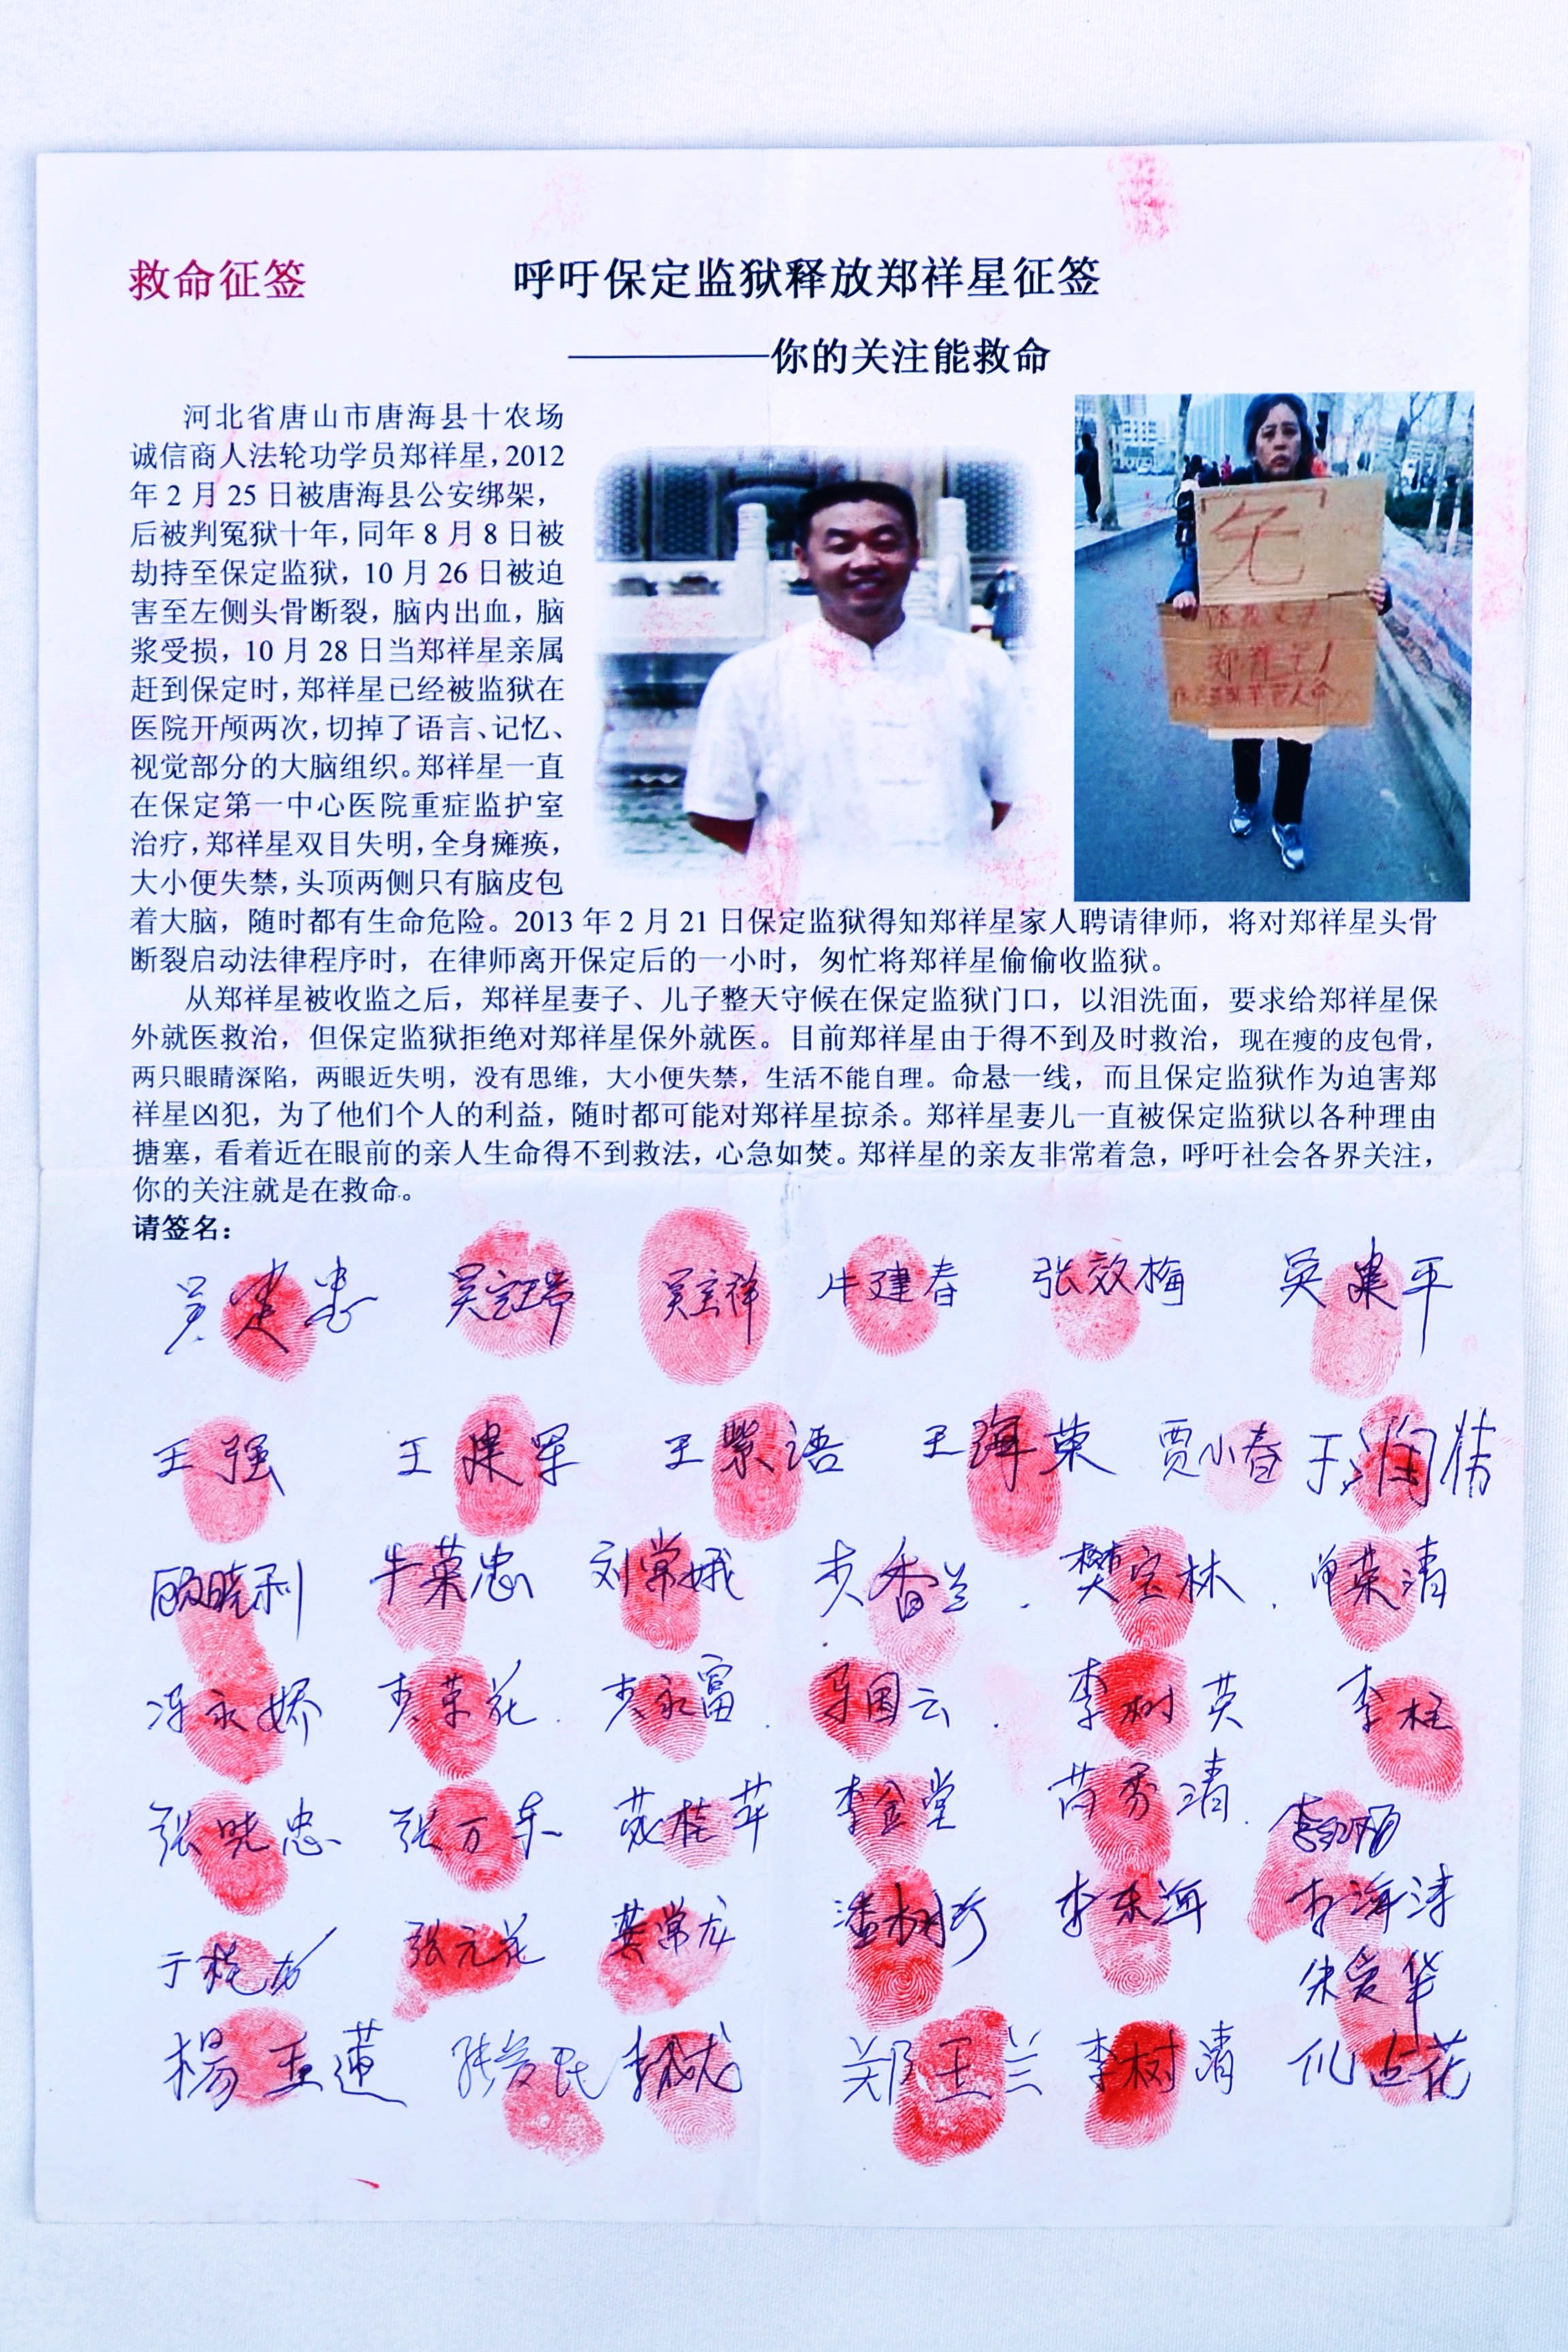 救命征签
呼吁保定监狱释放郑祥星征签
————你的关注能救命
河北省唐山市唐海县十农场
诚信商人法轮功学员郑祥星,2012
年 2 月 25 日被唐海县公安绑架,
后被判冤狱十年,同年 8 月 8 日被
劫持至保定监狱,10 月 26 日被迫
害至左侧头骨断裂,脑内出血,脑
浆受损,10 月 28 日当郑祥星亲属
赶到保定时,郑祥星已经被监狱在
医院开颅两次,切掉了语言、记忆、
视觉部分的大脑组织。郑祥星一直
在保定第一中心医院重症监护室
治疗,郑祥星双目失明,全身瘫痪,
大小便失禁,头顶两侧只有脑皮包
着大脑,随时都有生命危险。2013 年 2 月 21 日保定监狱得知郑祥星家人聘请律师,将对郑祥星头骨
断裂启动法律程序时,在律师离开保定后的一小时,匆忙将郑祥星偷偷收监狱。
从郑祥星被收监之后,郑祥星妻子、儿子整天守候在保定监狱门口,以泪洗面,要求给郑祥星保
外就医救治,但保定监狱拒绝对郑祥星保外就医。目前郑祥星由于得不到及时救治,现在瘦的皮包骨,
两只眼睛深陷,两眼近失明,没有思维,大小便失禁,生活不能自理。命悬一线,而且保定监狱作为迫害郑
祥星凶犯,为了他们个人的利益,随时都可能对郑祥星掠杀。郑祥星妻儿一直被保定监狱以各种理由
搪塞,看着近在眼前的亲人生命得不到救法,心急如焚。郑祥星的亲友非常着急,呼吁社会各界关注,
你的关注就是在救命。
请签名:
吴建忠 吴宝祥 牛建春 张效梅 吴建平
王强 王建军 王紫语 王海荣 贾小春
牛荣忠 刘常娥 史香兰 樊宝林 单荣清
冯永娇 史荣花 史永富 马国云 李树英 李柱
张晓忠 张万东 李金堂
张元花 龚常龙 李东海 李海涛
朱爱华
杨玉莲 张爱民 李成龙 郑玉兰 李树清